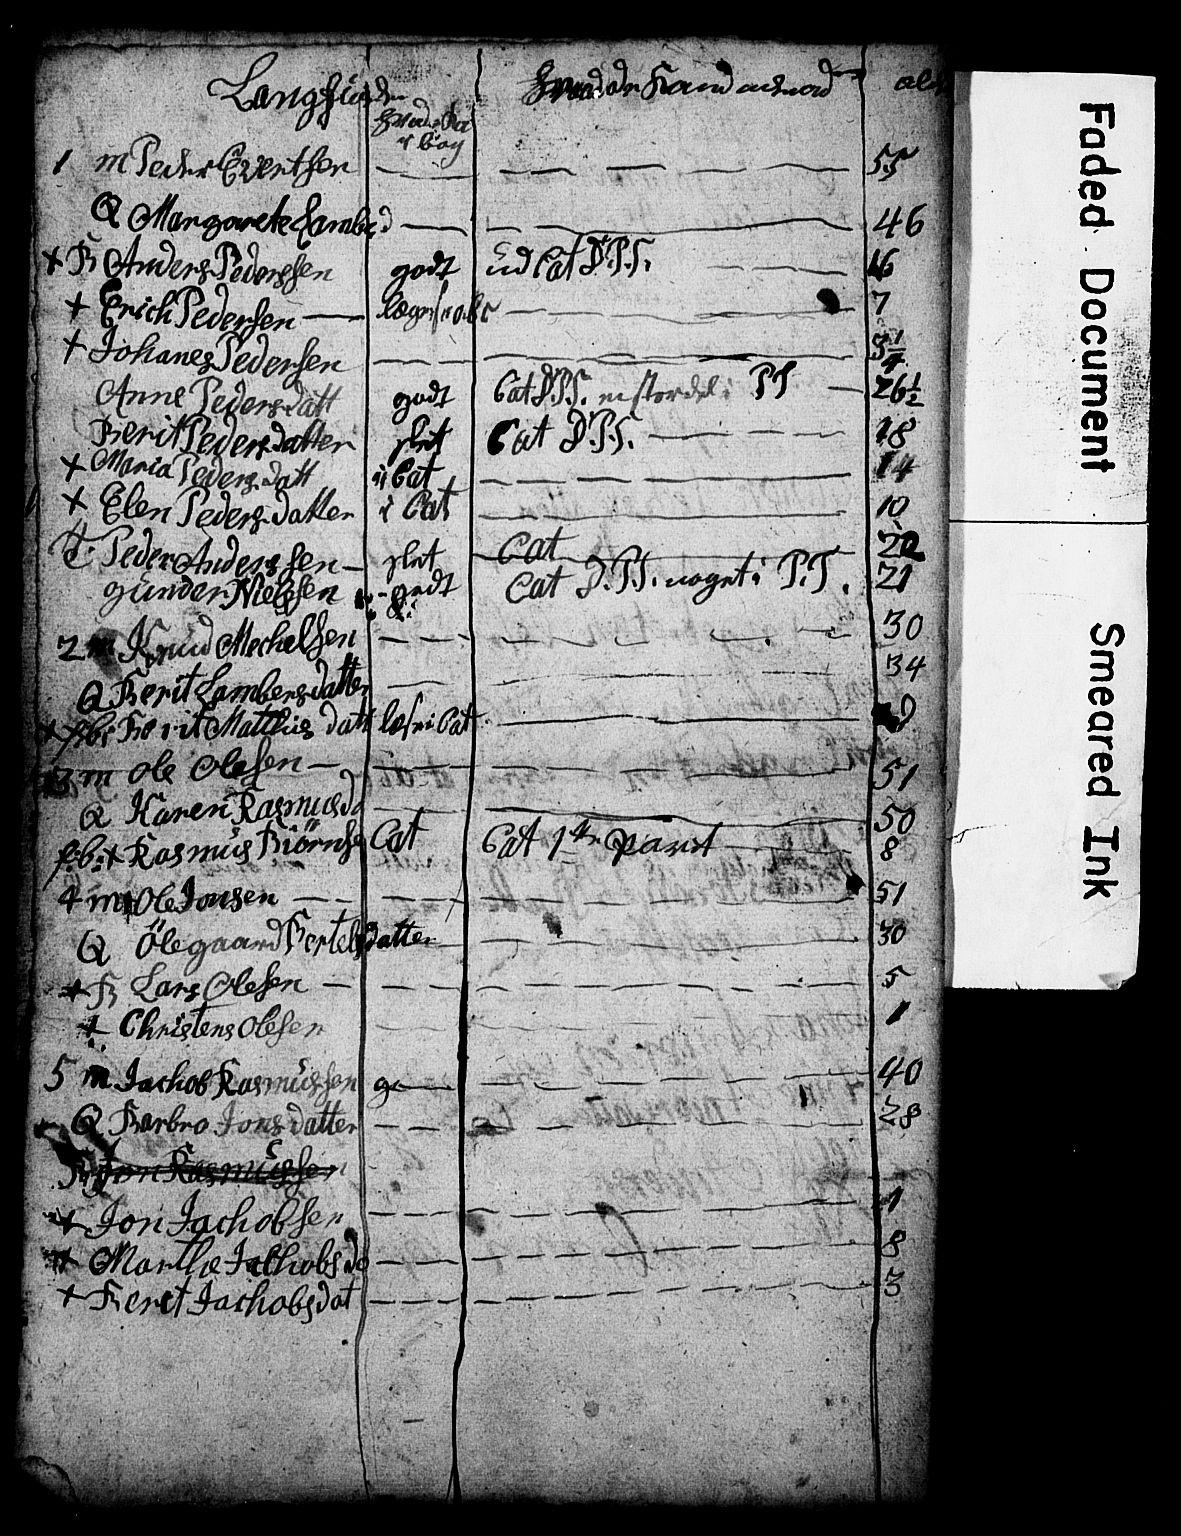 Langfiorden
1 m Peder Evertsen — — — 55
Q Margarete Lambe d — — 46
+ B Anders Pederssen godt ud Cat D.P.S. — — 16
+ Erich Pedersen — — 7
+ Johanes Pedersen — — 3 1/4
Anne Pedersdatt godt Cat D.P.S. en stor del i P S — 26 1/2
Berit Pedersdatter slet Cat D.P.S. — — 18
+ Maria Pedersdatt i Cat — — 14
+ Elen Pedersdatter i Cat — 10
T. Peder Anderssen — slet Cat — 22
günder Nielssen godt Cat D.P.S. noget i P.S. 21
2 m Knud Mechelsen — — — 30
Q Berit Lambersdatter — — 34
+ f.b: Berit Matthis datt læser i Cat — 9
3 m Ole Olesen — — — 51
Q Karen Rasmusd — — 50
f.b: + Rasmus Biörns Cat Cat 1ste part — 8
4 m Ole Jonsen — — — 51
Q Ölegaard Bertelsdatter — 30
+ B Lars Olesen — — — 5
+ Christens Olesen — 1
5 m Jachob Rasmüssen — — 40
Q Barbro Jonsdatter — — 28
B Jon Rasmüssen
+ Jon Jachobsen — — 1
+ Marthe Jachobs da — — 8
+ Berit Jachobsdat — — 3
Faded Document
Smeared Ink